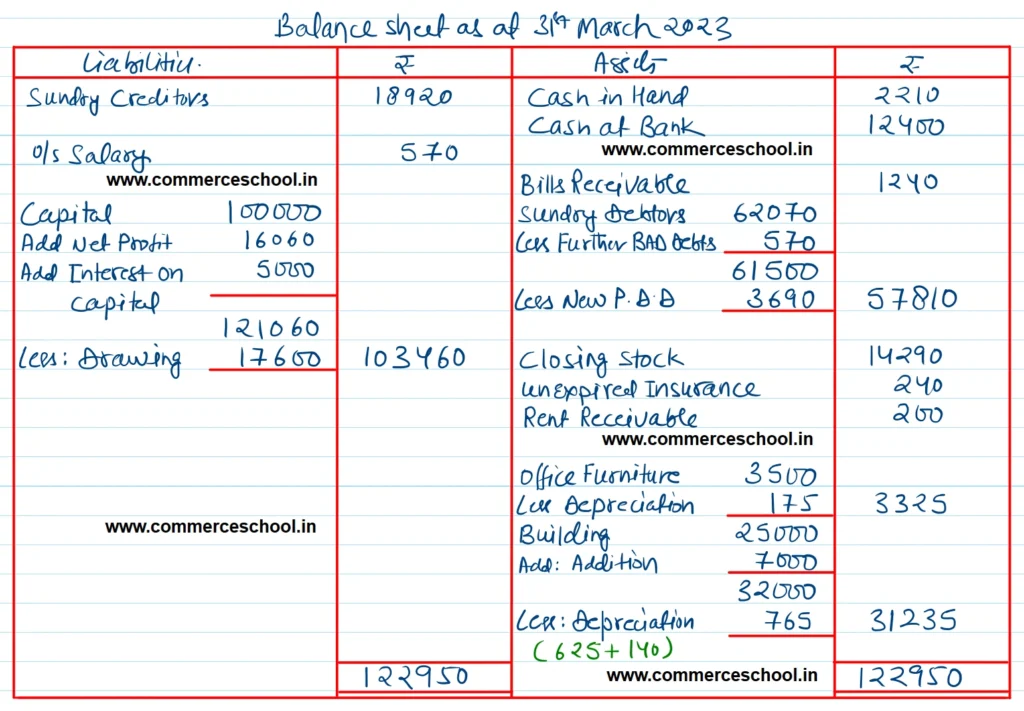 Balance sheet as at 31st March 2023
Liabilities.
₹
Assets
₹
Sundry Creditors 18920
o/s Salary 570
www.commerceschool.in
Capital 100000
Add Net Profit 16060
Add Interest on 5000
capital
121060
Less: Drawing 17600 103460
www.commerceschool.in
122950
Cash in Hand 2210
Cash at Bank 12400
www.commerceschool.in
Bills Receivable 1240
Sundry Debtors 62070
Less Further BAD Debts 570
61500
Less New P.B.D 3690 57810
Closing Stock 14290
unexpired Insurance 240
Rent Receivable 200
www.commerceschool.in
Office Furniture 3500
Less Depreciation 175 3325
Building 25000
Add: Addition 7000
32000
Less: Depreciation 765 31235
(625+140)
www.commerceschool.in
122950